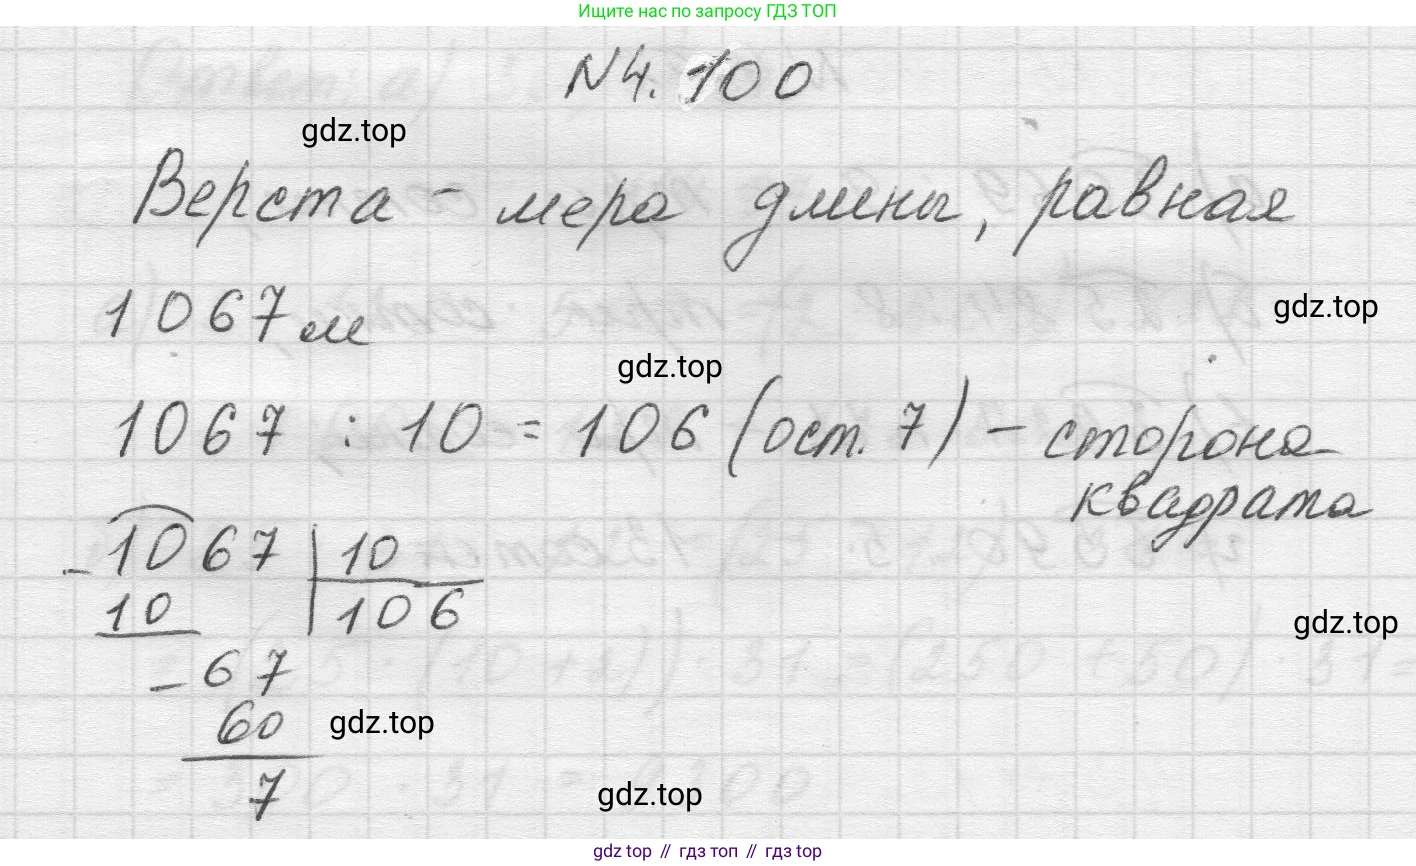 Ищите нас по запросу ГДЗ ТОП
N4.100
gdz.top
Верста - мера длины, равная
1067 м
gdz.top
gdz.top
1067 : 10 = 106 (ост. 7) - сторона
квадрата
- 1067 | 10
10 | 106
gdz.top
- 67
60
gdz.top
7
gdz.top
gdz top // гдз топ // gdz top